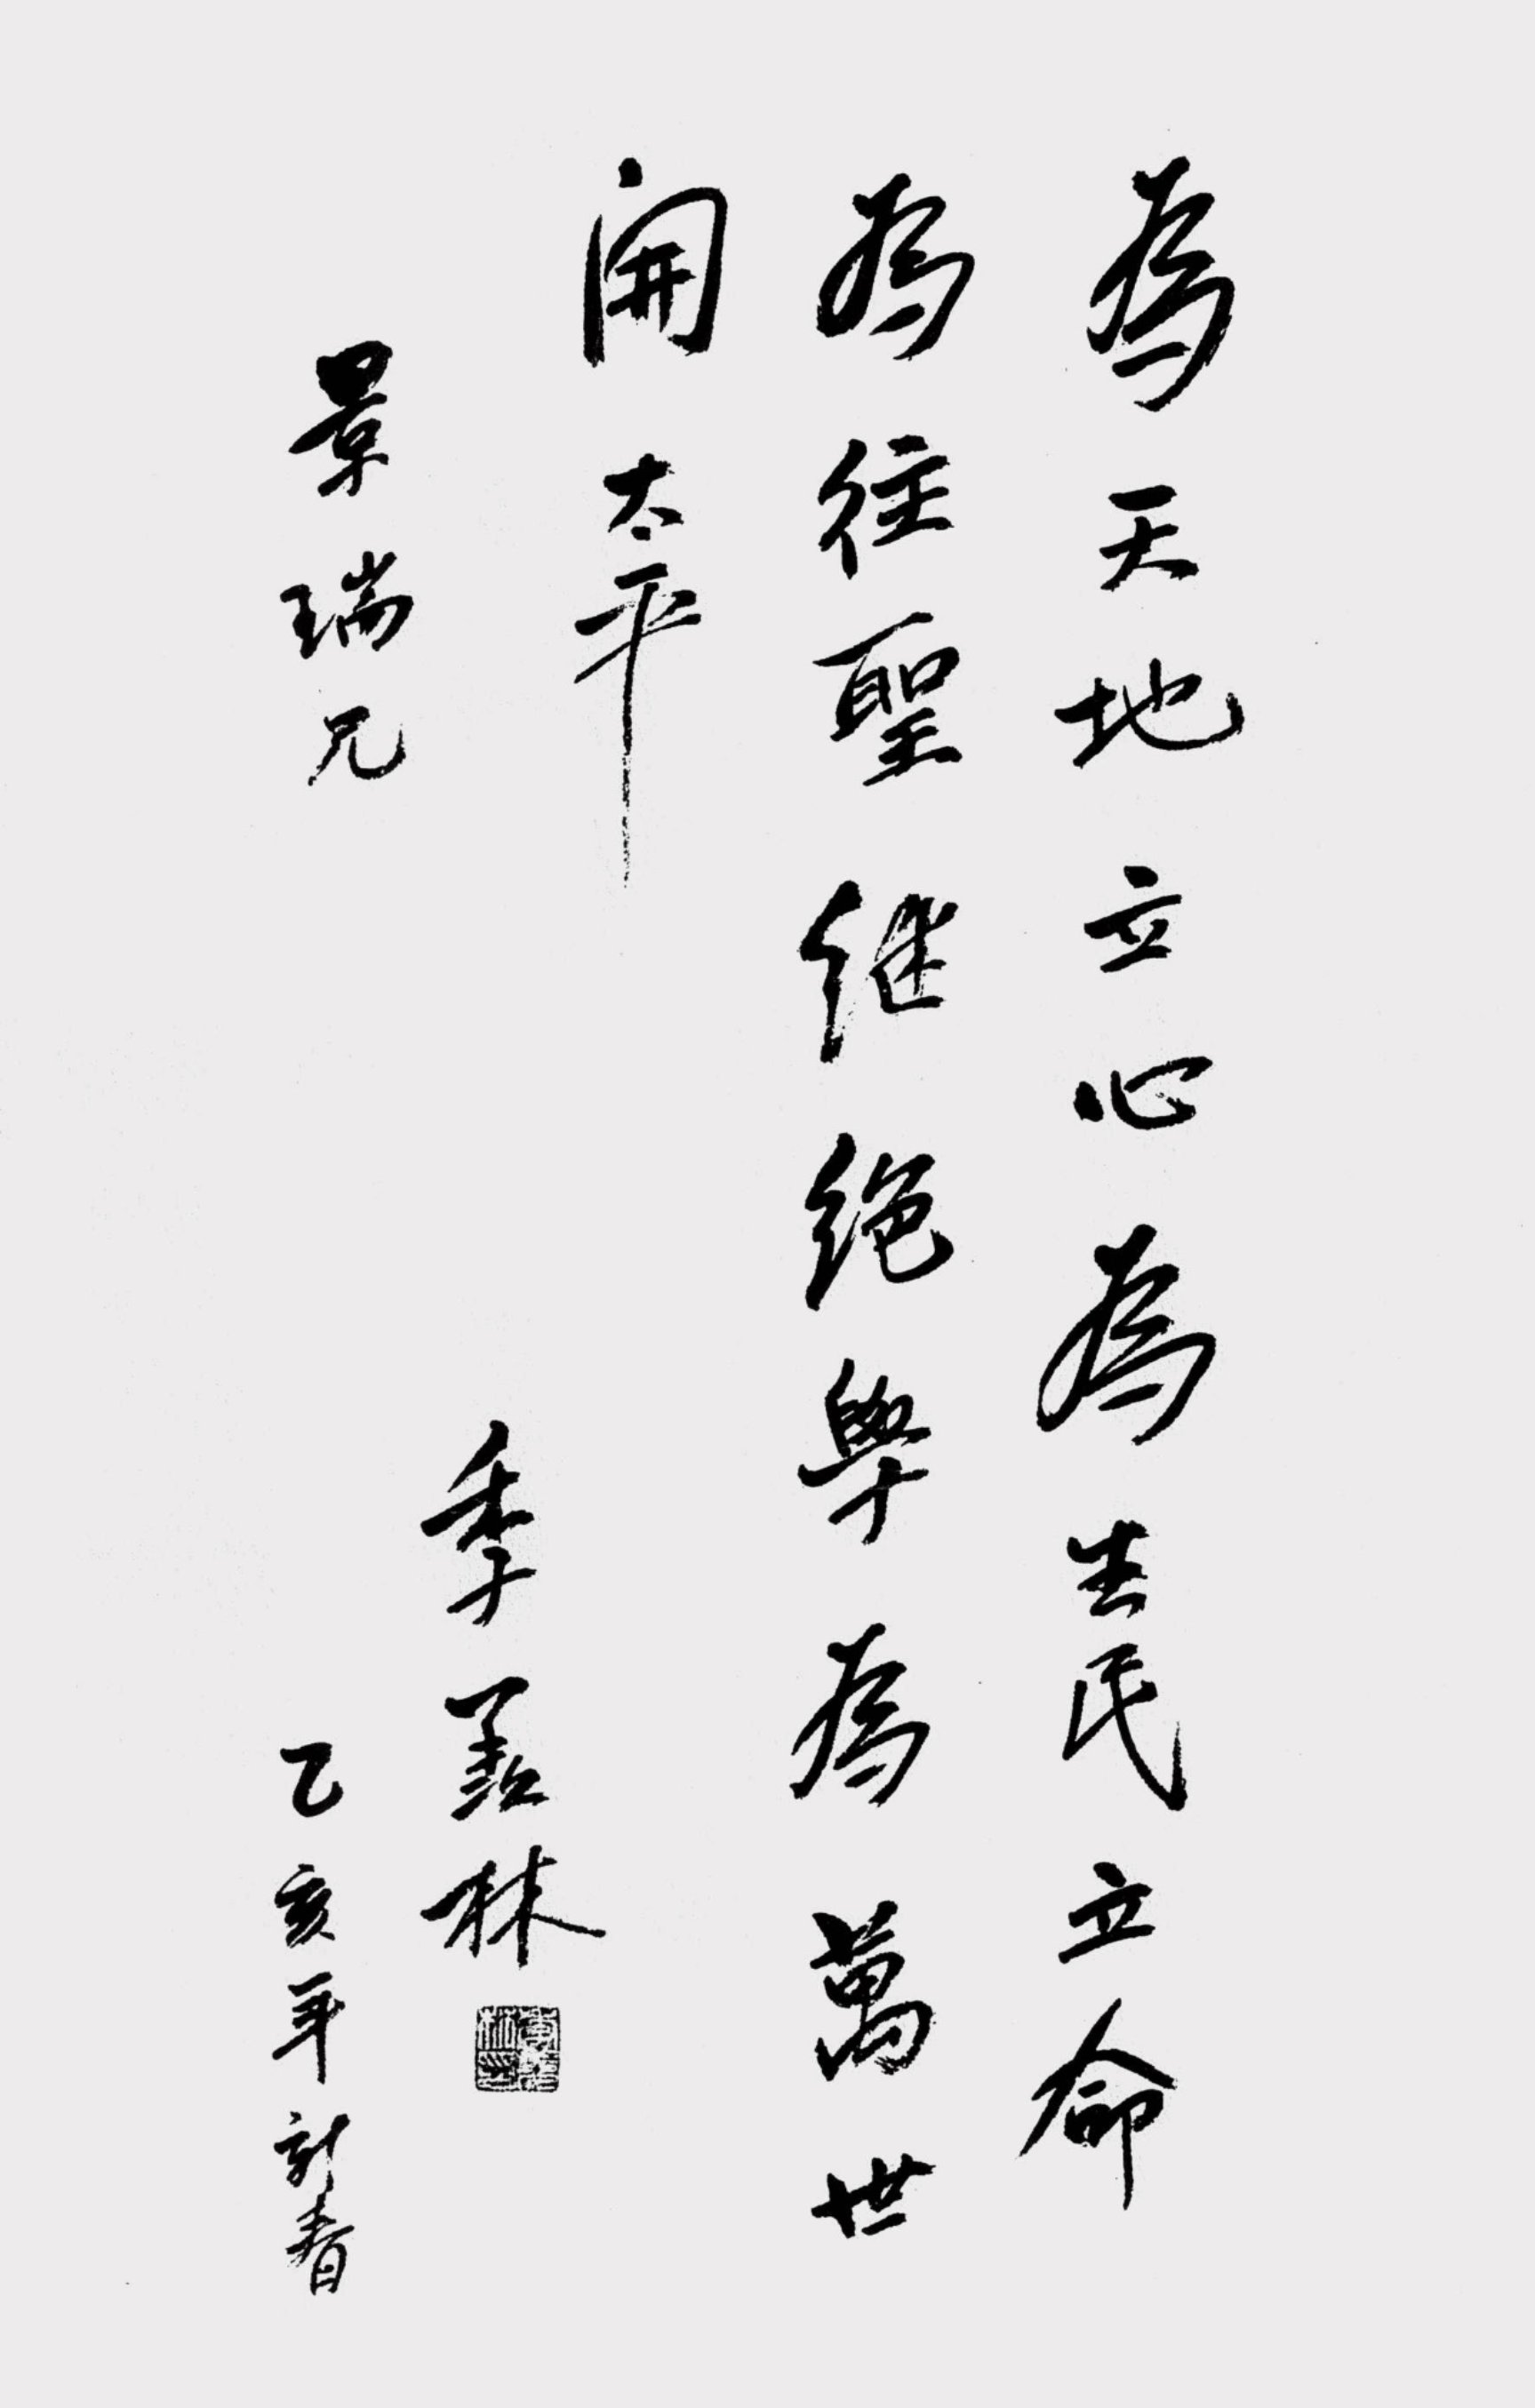 為天地立心為生民立命
為往聖继绝學為萬世
開太平
季羡林
景瑞兄
乙亥年新春